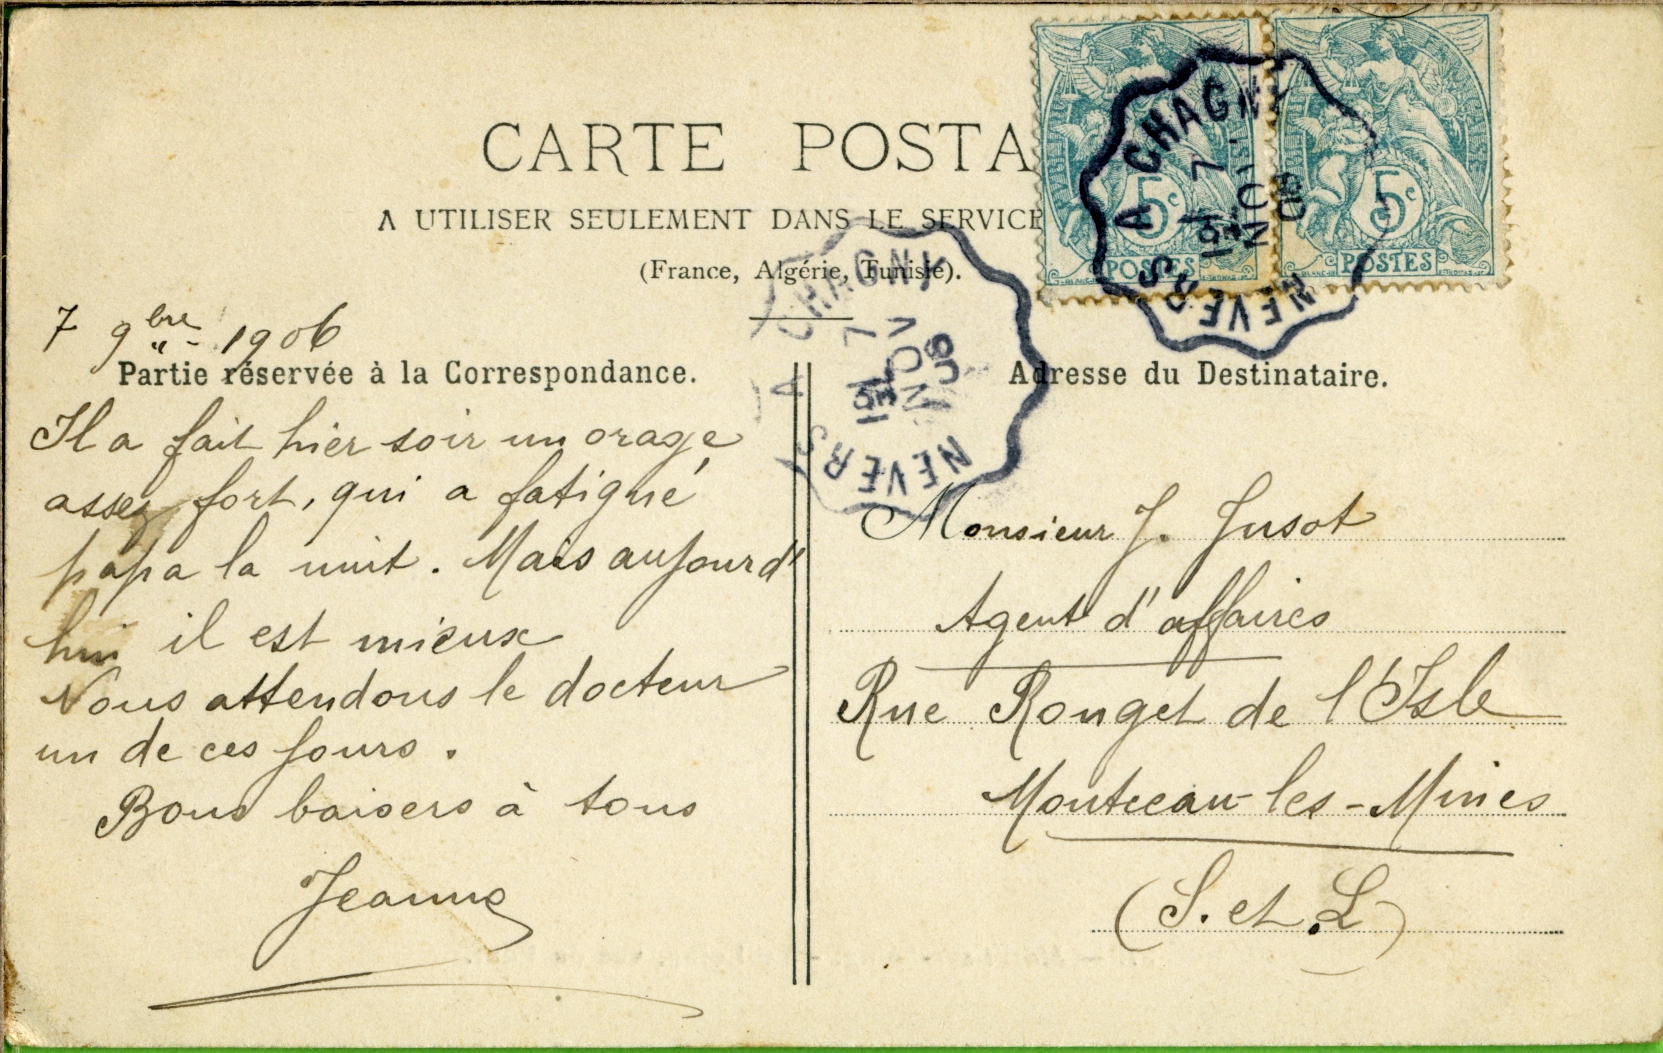 CARTE POSTA
A UTILISER SEULEMENT DANS LE SERVICE
(France, Algérie, Tunisie).
5c
POSTES
5c
POSTES
NEVERS A CHAGNY
7
NOV
06
NEVERS A CHAGNY
7
NOV
06
7 9bre 1906
Partie réservée à la Correspondance.
Il a fait hier soir un orage
assez fort, qui a fatigué
papa la nuit. Mais aujourd'
hui il est mieux
Nous attendons le docteur
un de ces jours.
Bons baisers à tous
Jeanne
Adresse du Destinataire.
Monsieur J. Jusot
Agent d'affaires
Rue Rouget de l'Isle
Montceau-les-Mines
(S. et L)